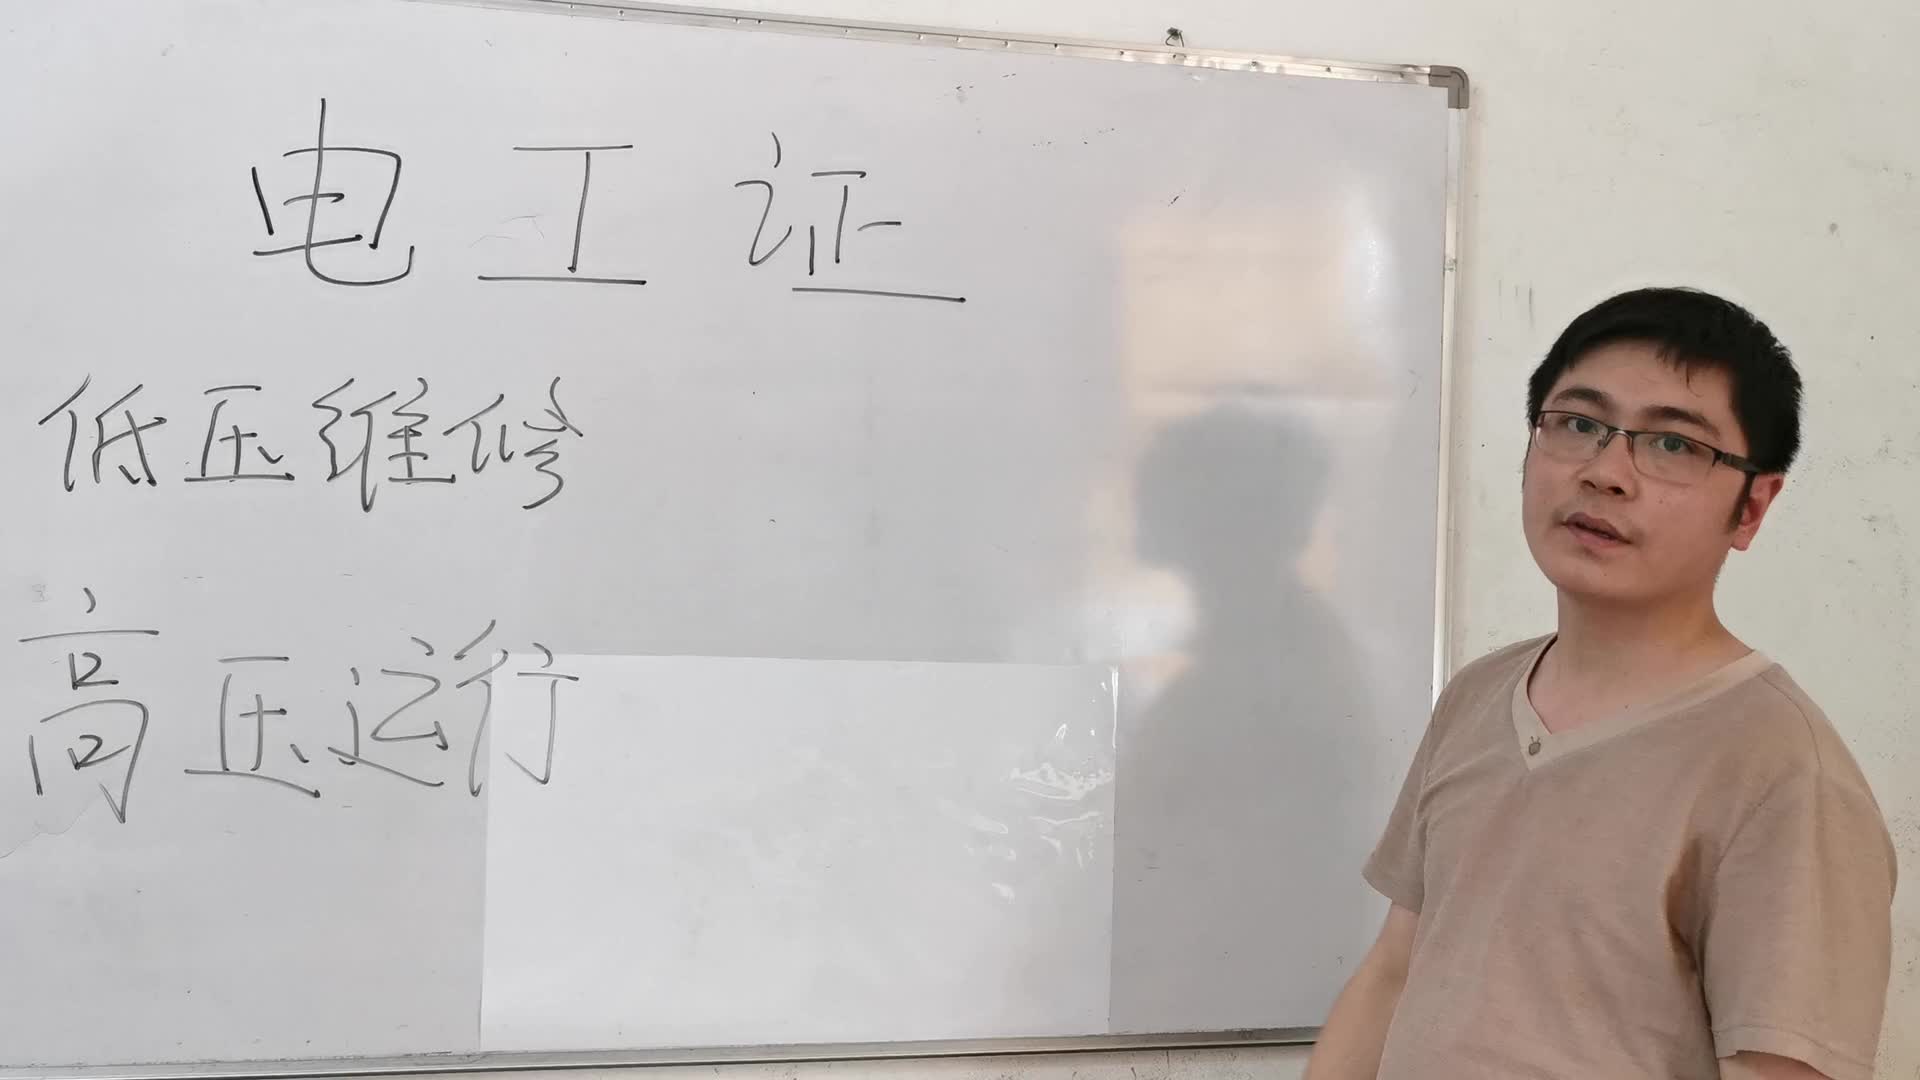 电工证
低压维修
高压运行